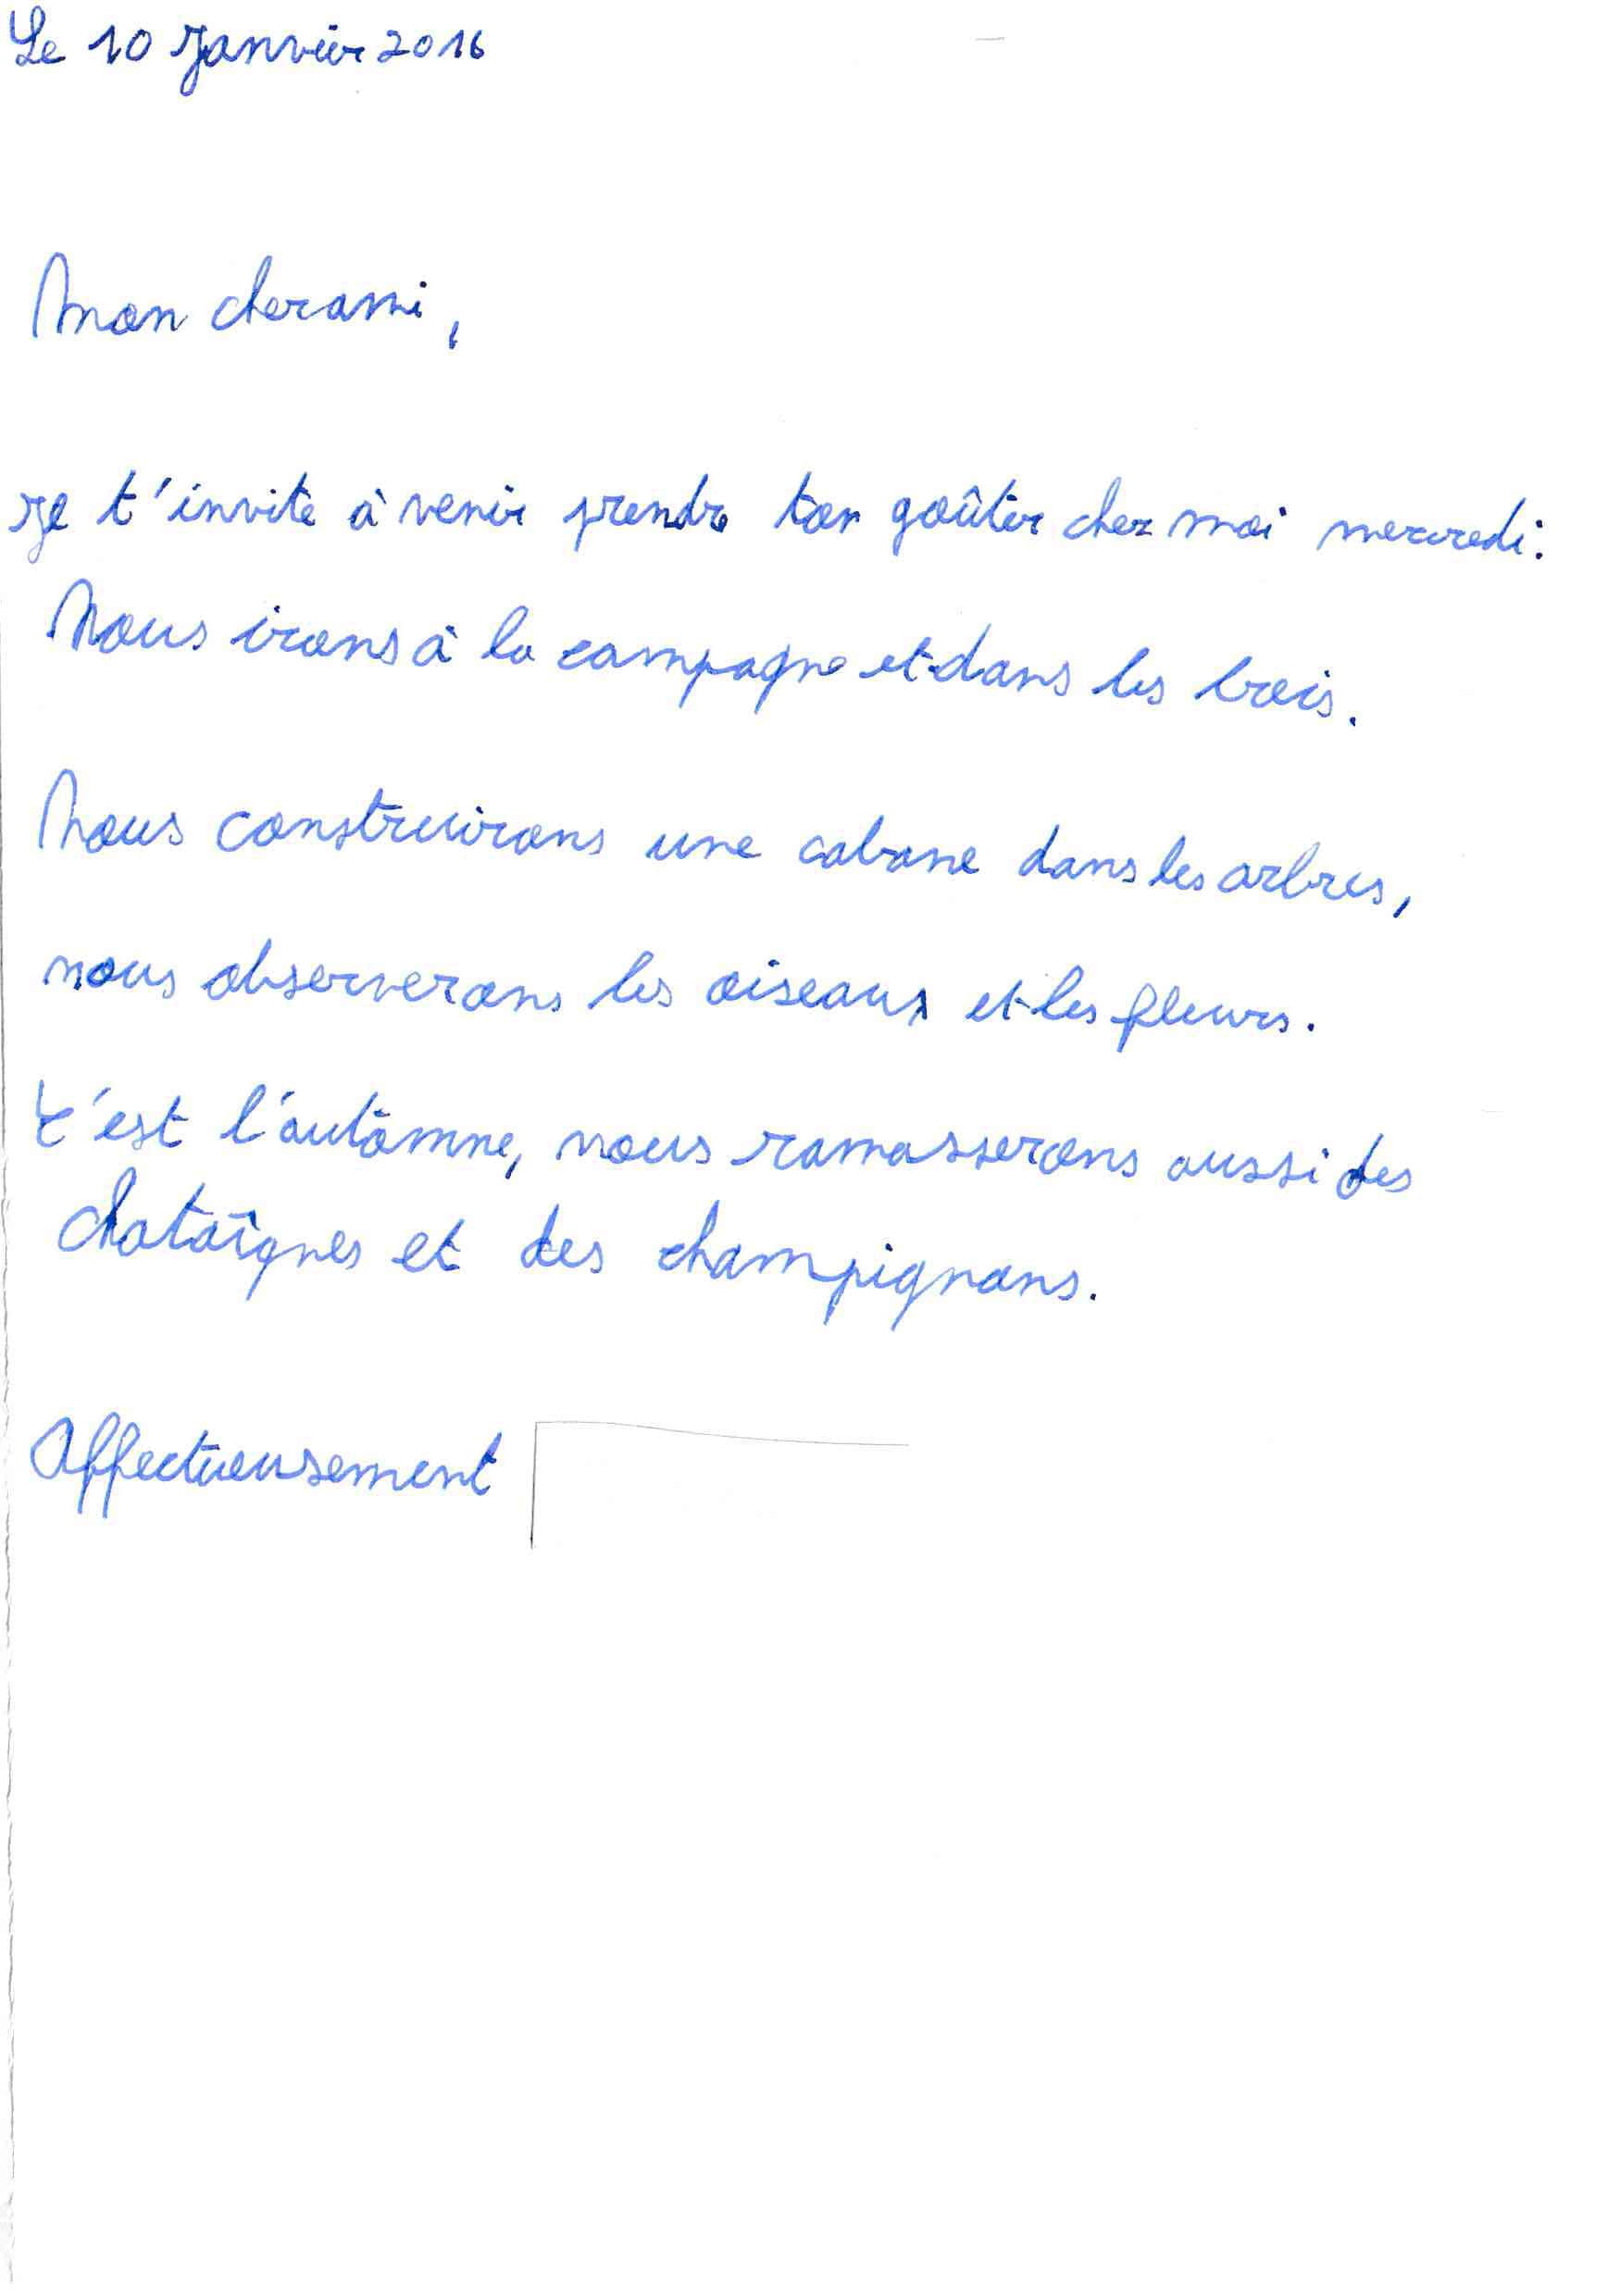 Le 10 Janvier 2016
Mon cher ami,
Je t'invite à venir prendre ton goûter chez moi mercredi.
Nous irons à la campagne et dans les bois.
Nous construirons une cabane dans les arbres,
nous observerons les oiseaux et les fleurs.
C'est l'autômne, nous ramasserons aussi des
chataîgnes et des champignons.
Affectueusement